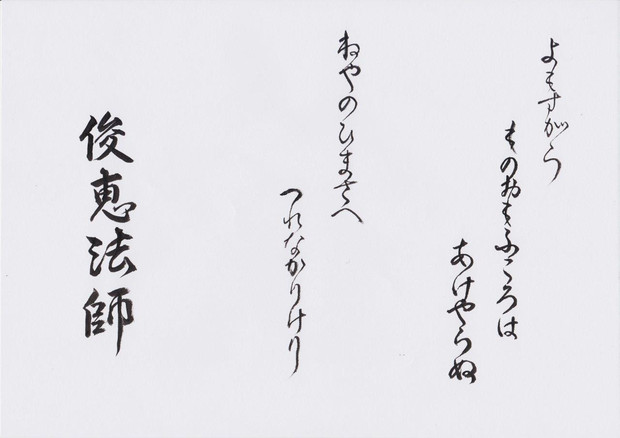 よもすがら
ものおもふころは
あけやらぬ
ねやのひまさへ
つれなかりけり
俊恵法師